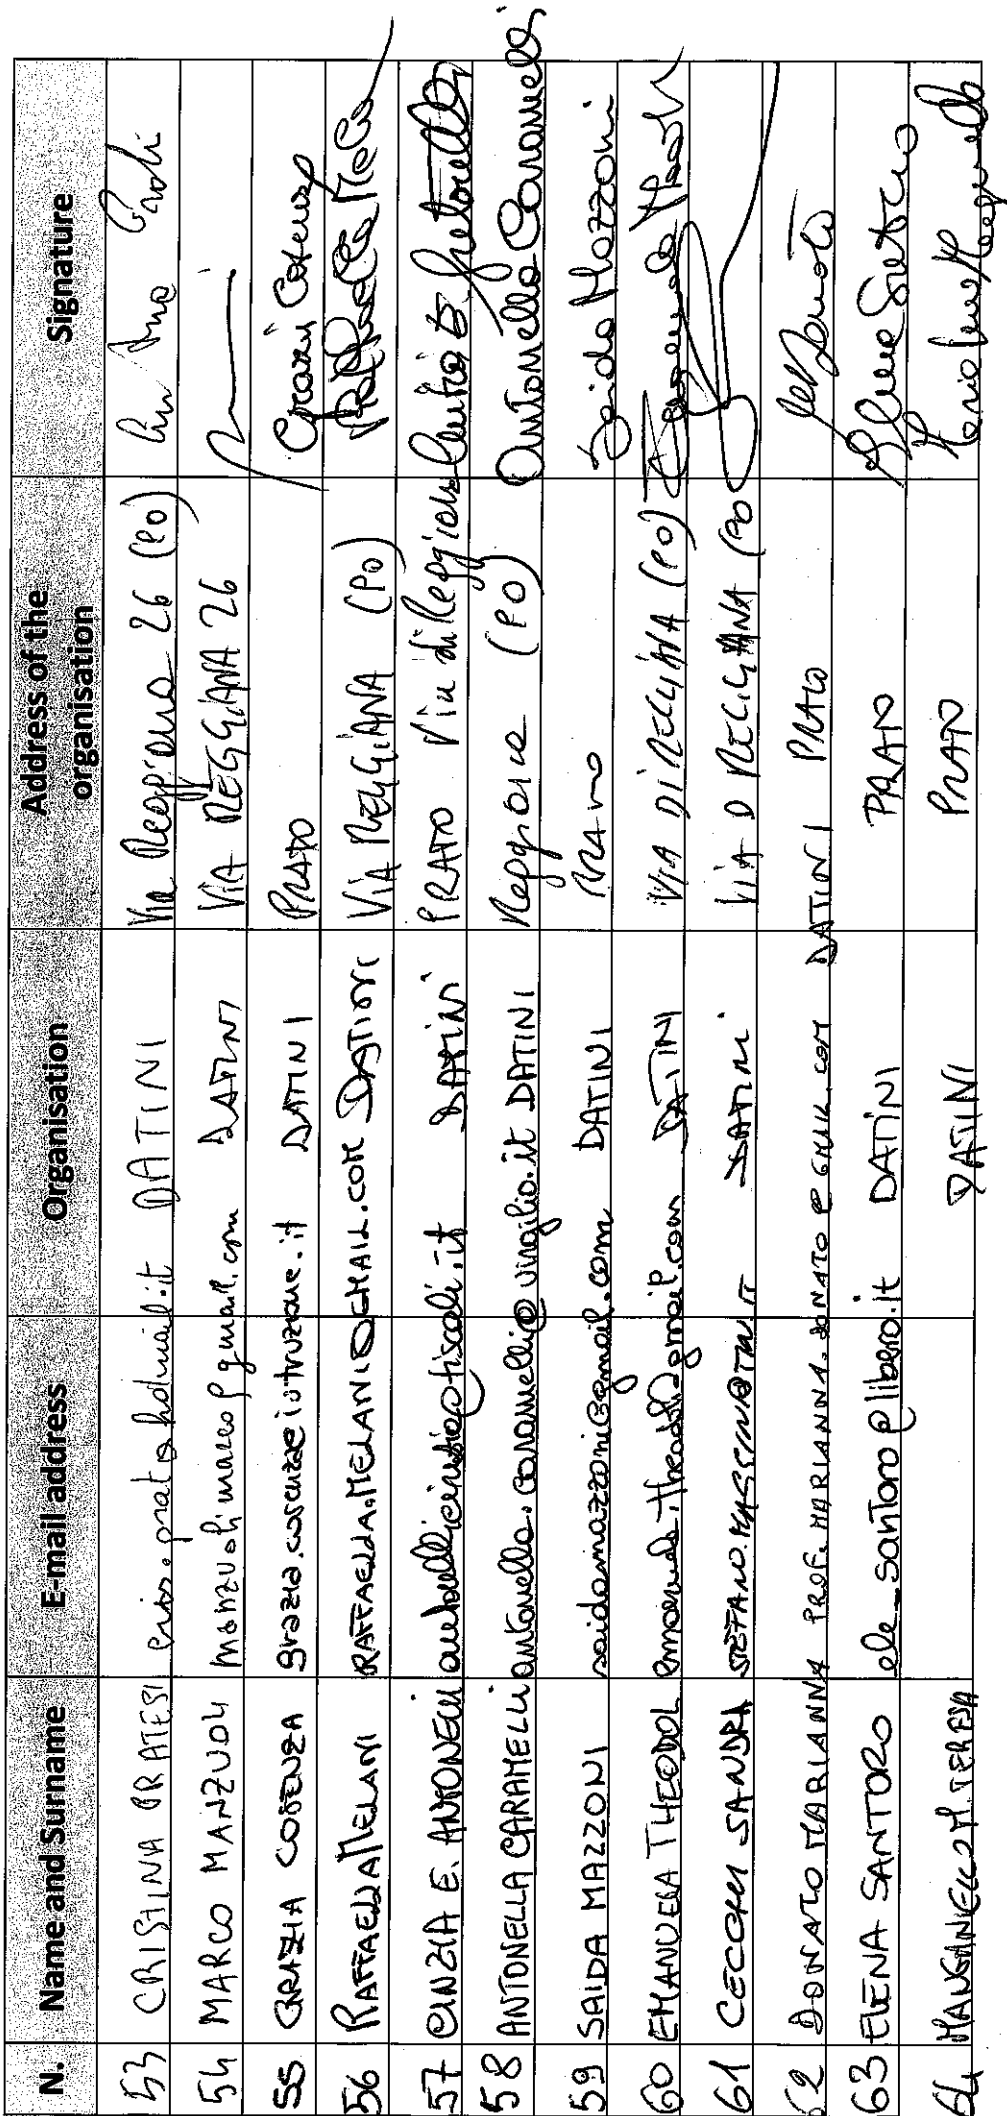 N. Name and Surname E-mail address Organisation Address of the organisation Signature
53 CRISTINA PRATESI DATINI Via Reggiana 26 (PO)
54 MARCO MANZUOLI manzuolimarco@gmail.com DATINI VIA REGGIANA 26
55 GRAZIA COSENZA grazia.cosenza@istruzione.it DATINI PRATO Grazia Cosenza
56 RAFFAELLA MELANI RAFFAELLA.MELANI@GMAIL.COM DATINI VIA REGGIANA (PO) Raffaella Melani
57 CINZIA E. ANTONELLI antonellicinzia@tiscali.it DATINI PRATO Via di Reggiana
58 ANTONELLA CARAMELLI antonella.caramelli@virgilio.it DATINI Reggiana (PO) Antonella Caramelli
59 SAIDA MAZZONI saidamazzoni@gmail.com DATINI PRATO Saida Mazzoni
60 EMANUELA THEODOL DATINI VIA DI REGGIANA (PO)
61 CECCONI SANDRA DATINI VIA D REGGIANA (PO
62 DONATO MARIANNA PROF.MARIANNA.DONATO@GMAIL.COM DATINI PRATO
63 ELENA SANTORO ele_santoro@libero.it DATINI PRATO Elena Santoro
64 MANGANIELLO M. TERESA DATINI PRATO